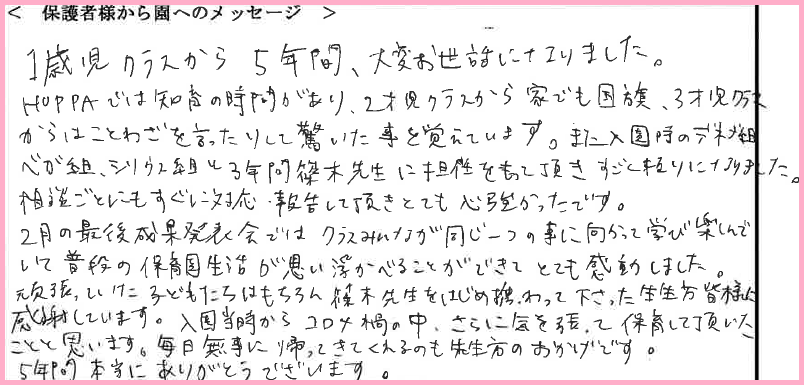 < 保護者様から園へのメッセージ >
1歳児クラスから 5年間、大変お世話になりました。
HOPPAでは知育の時間があり、2才児クラスから家でも国旗、3才児クラス
からはことわざを言ったりして驚いた事を覚えています。また入園時のデネブ組
ベガ組、シリウス組と3年間篠木先生に担任をもって頂きすごく頼りになりました。
相談ごとにもすぐに対応・報告して頂きとても心強かったです。
2月の最後成果発表会ではクラスみんなが同じ一つの事に向かって学び楽しんで
いて普段の保育園生活が思い浮かべることができてとても感動しました。
頑張っていた子どもたちはもちろん篠木先生をはじめ携わって下さった先生方皆様に
感謝しています。入園当時からコロナ禍の中、さらに気を張って保育して頂いた
ことと思います。毎日無事に帰ってきてくれるのも先生方のおかげです。
5年間本当にありがとうございます。